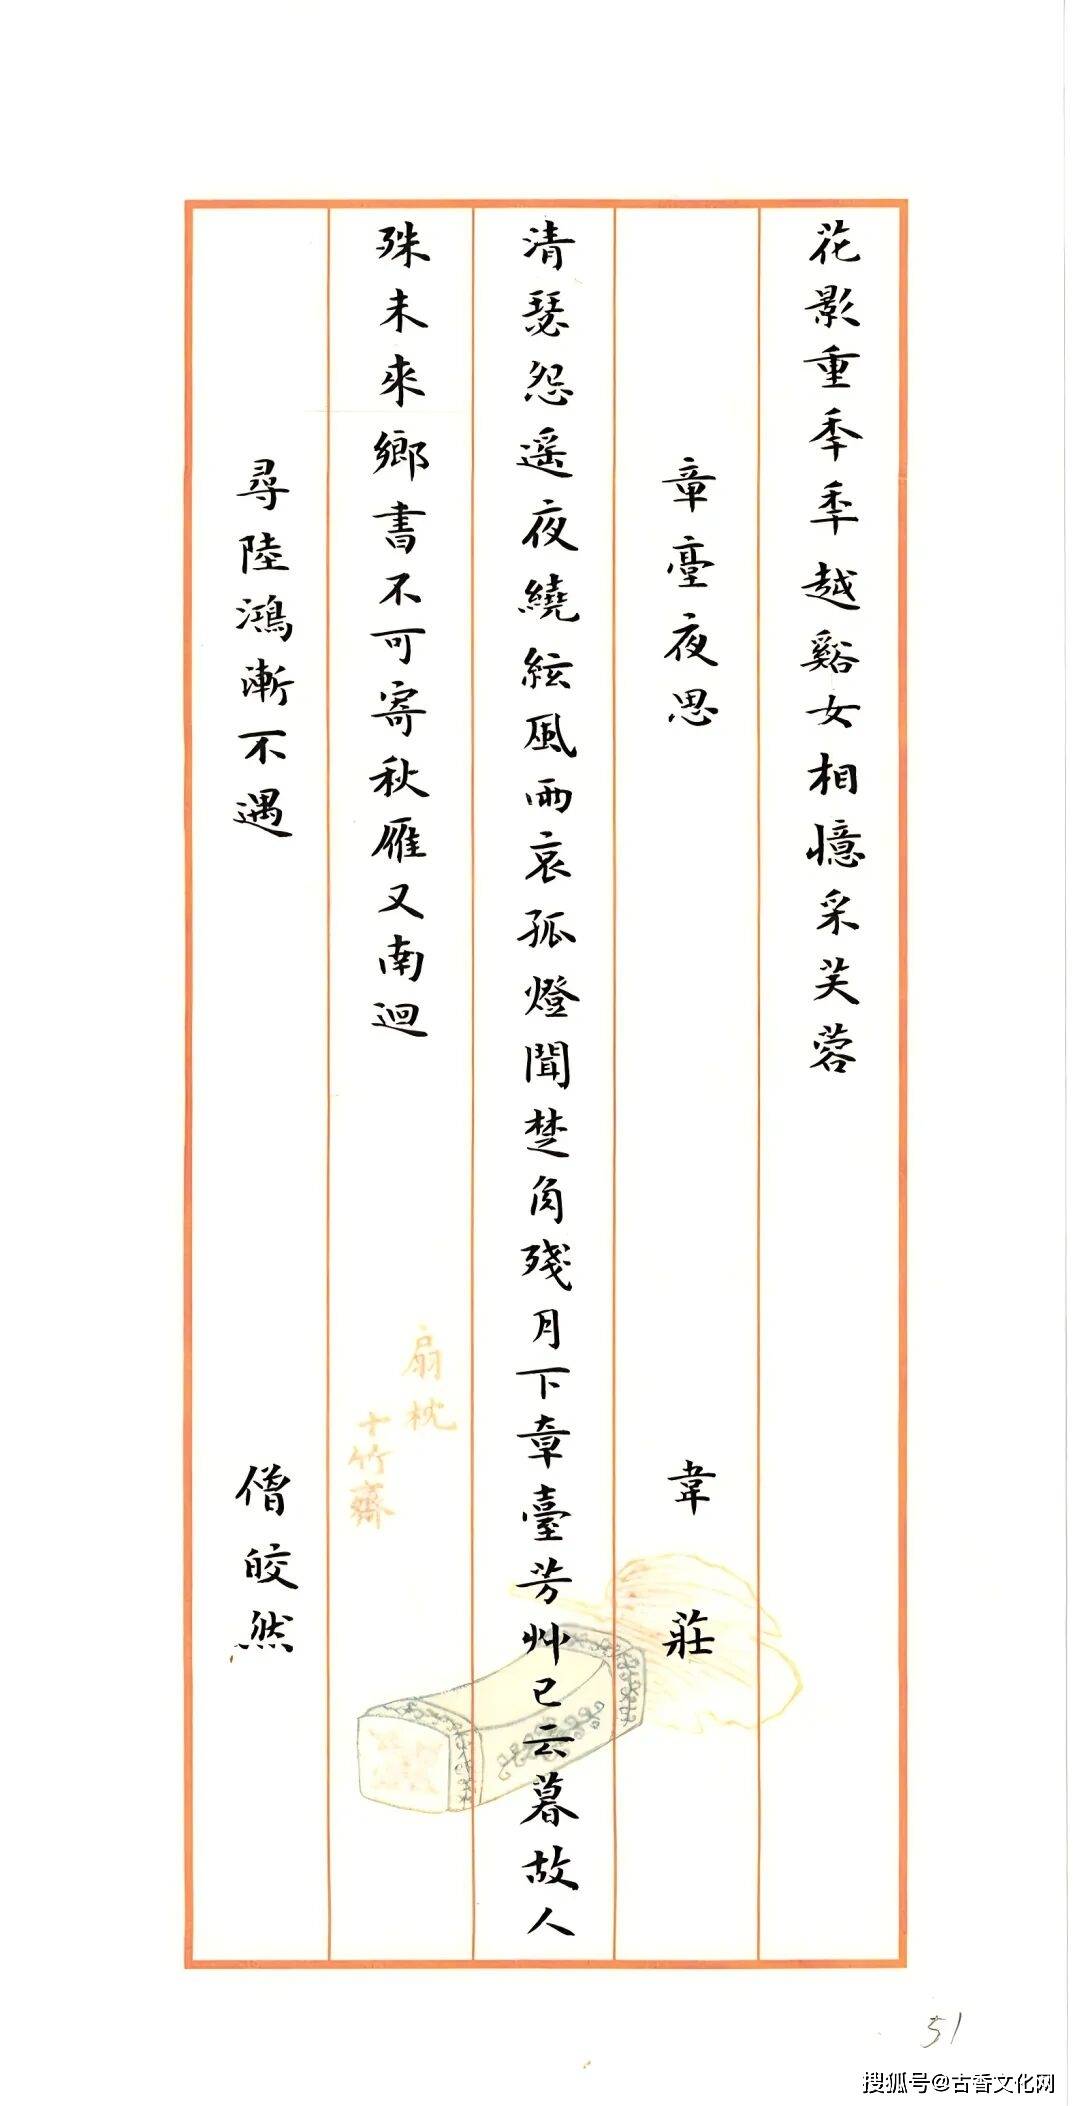 花影重季季越谿女相憶采芙蓉
章臺夜思
韋莊
清瑟怨遥夜繞絃風雨哀孤燈聞楚角殘月下章臺芳艸已云暮故人
殊未來鄉書不可寄秋雁又南迴
尋陸鴻漸不遇
僧皎然
扇枕
十竹齋
51
搜狐号@古香文化网